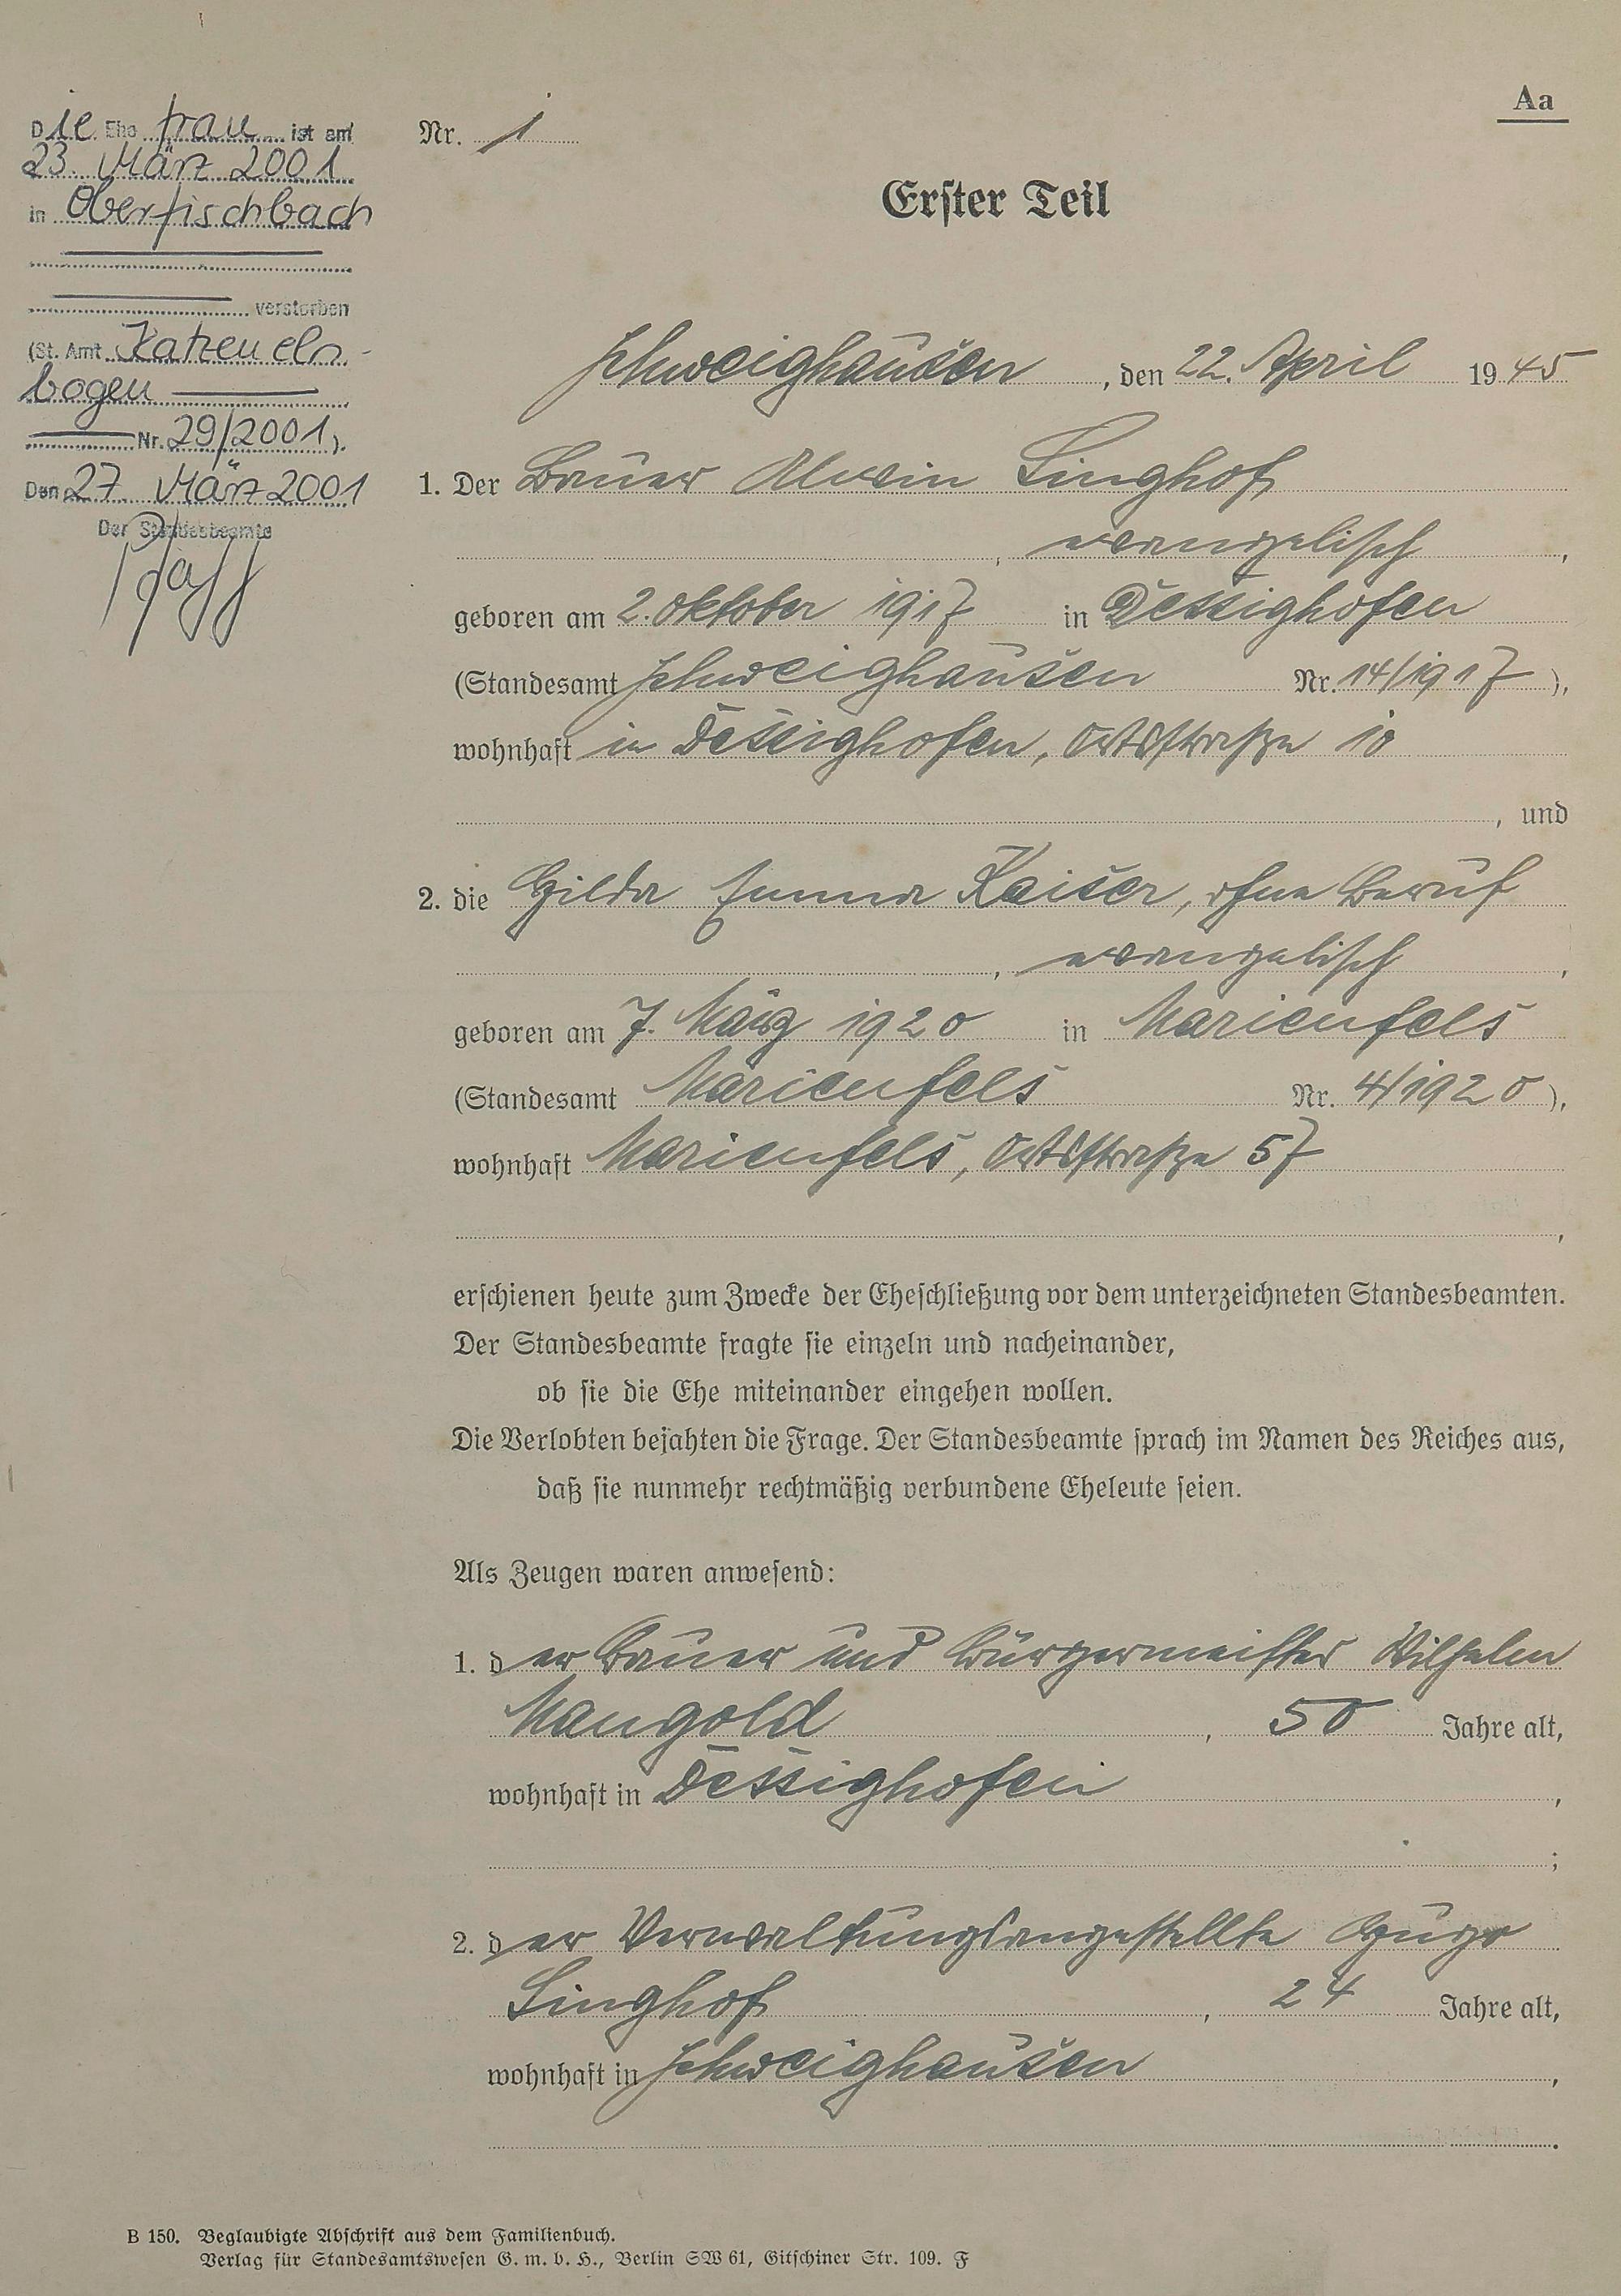 Die Ehefrau ist am
23. März 2001
in Oberfischbach
verstorben
(St. Amt Katzeneln-
bogen
Nr. 29/2001).
Den 27. März 2001
Der Standesbeamte
Pfaff
Aa
Nr. 1
Erster Teil
Schweighausen, den 22. April 1945
1. Der Bauer Alwin Singhof
, evangelisch,
geboren am 2. Oktober 1917 in Dessighofen
(Standesamt Schweighausen Nr. 14/1917),
wohnhaft in Dessighofen, Ortsstraße 10
, und
2. die Gilda Emma Kaiser, ohne Beruf
, evangelisch,
geboren am 7. März 1920 in Marienfels
(Standesamt Marienfels Nr. 4/1920),
wohnhaft Marienfels, Ortsstraße 57
,
erschienen heute zum Zwecke der Eheschließung vor dem unterzeichneten Standesbeamten.
Der Standesbeamte fragte sie einzeln und nacheinander,
ob sie die Ehe miteinander eingehen wollen.
Die Verlobten bejahten die Frage. Der Standesbeamte sprach im Namen des Reiches aus,
daß sie nunmehr rechtmäßig verbundene Eheleute seien.
Als Zeugen waren anwesend:
1. der Bauer und Bürgermeister Wilhelm
Mangold, 50 Jahre alt,
wohnhaft in Dessighofen,
;
2. der Verwaltungsangestellte Hugo
Singhof, 24 Jahre alt,
wohnhaft in Schweighausen,
.
B 150. Beglaubigte Abschrift aus dem Familienbuch.
Verlag für Standesamtswesen G. m. b. H., Berlin SW 61, Gitschiner Str. 109. F